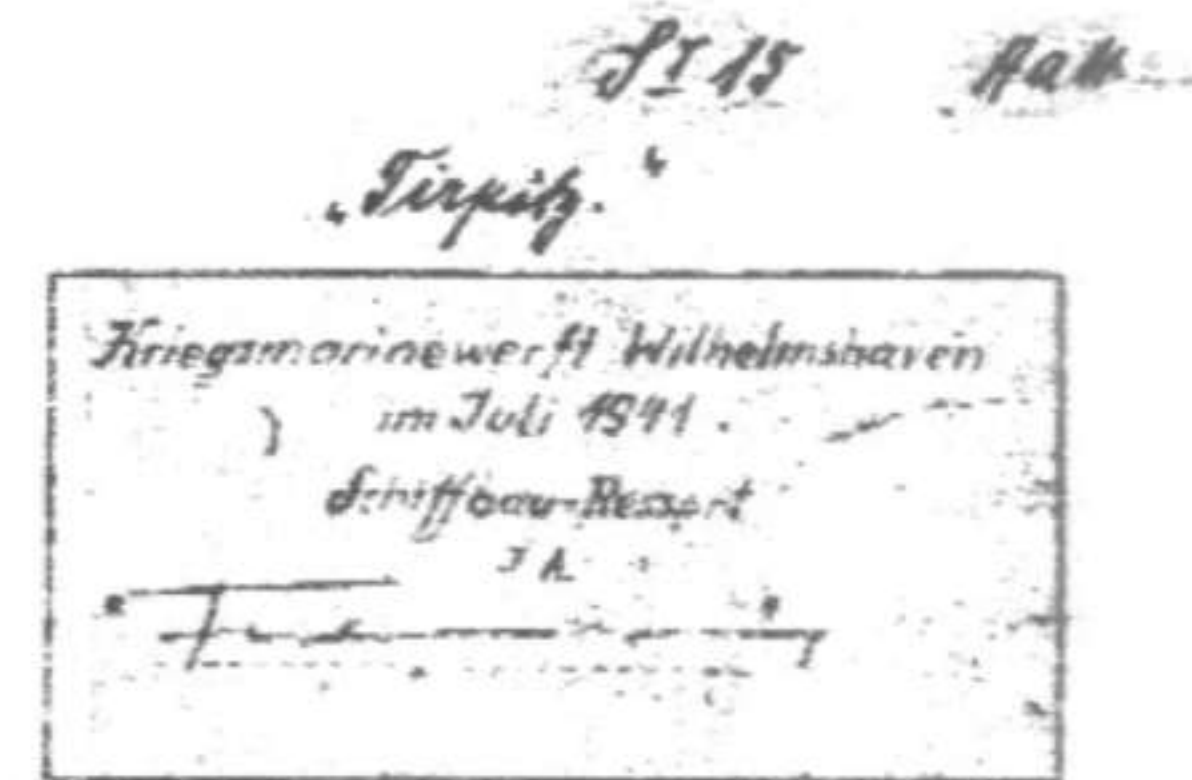 St 15
„Tirpitz.“
Kriegsmarinewerft Wilhelmshaven
im Juli 1941.
Schiffbau-Ressort
I A